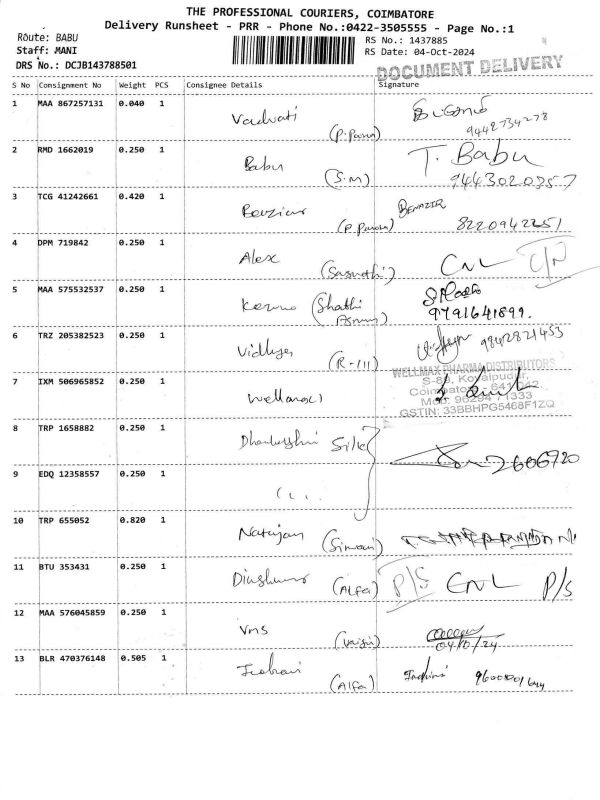 THE PROFESSIONAL COURIERS, COIMBATORE
Delivery Runsheet - PRR - Phone No.:0422-3505555 - Page No.:1
Route: BABU
RS No.: 1437885
Staff: MANI
RS Date: 04-Oct-2024
DRS No.: DCJB143788501
DOCUMENT DELIVERY
S No Consignment No Weight PCS Consignee Details Signature
1 MAA 867257131 0.040 1
9442734278
2 RMD 1662019 0.250 1 Babu T. Babu
(S.M) 9443020357
3 TCG 41242661 0.420 1 BENAZIR
8220942251
4 DPM 719842 0.250 1 Alex CNL
5 MAA 575532537 0.250 1 (Shathi
9791641899.
6 TRZ 205382523 0.250 1 Vidhya 9842821453
(R-III)
WELLMAX PHARMA DISTRIBUTORS
7 IXM 506965852 0.250 1
S-89, Kovaipudur,
Coimbatore - 641 042
Mob: 96294 71333
GSTIN: 33BBHPG5468F1ZQ
8 TRP 1658882 0.250 1 Silk
2606720
9 EDQ 12358557 0.250 1
10 TRP 655052 0.820 1 Natrajan
11 BTU 353431 0.250 1 (Alfa) P/S CNL P/S
12 MAA 576045859 0.250 1 Vms
04/10/24
13 BLR 470376148 0.505 1
(Alfa)